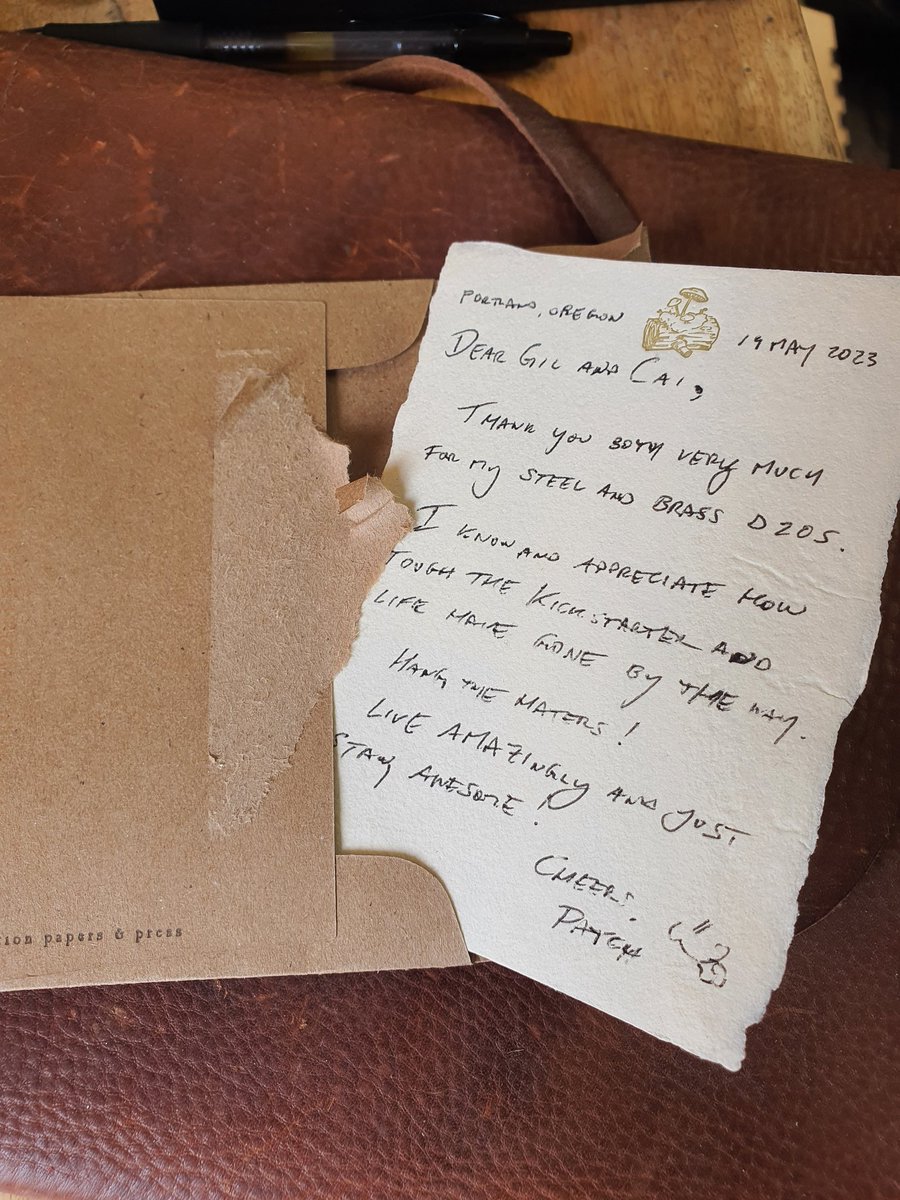 PORTLAND, OREGON
19 MAY 2023
DEAR GIL AND CAI,
THANK YOU BOTH VERY MUCH
FOR MY STEEL AND BRASS D20S.
I KNOW AND APPRECIATE HOW
TOUGH THE KICKSTARTER AND
LIFE HAVE GONE BY THE WAY.
HANG THE HATERS!
LIVE AMAZINGLY AND JUST
STAY AWESOME!
CHEERS,
PATCH
tion papers & press